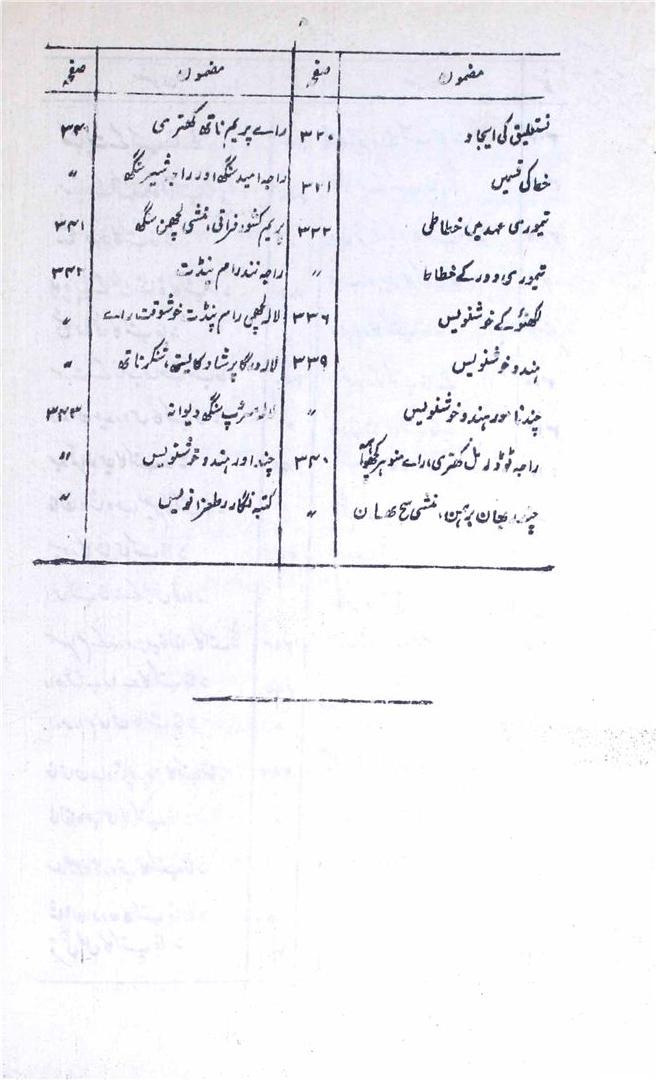 مضمون صفحہ
نستعلیق کی ایجاد ۳۲۰
خط کی قسمیں ۳۲۱
تیموری عہد میں خطاطی ۳۲۲
تیموری دور کے خطاط ״
لکھنؤ کے خوشنویس ۳۳۶
ہندو خوشنویس ۳۳۹
چند نامور ہندو خوشنویس ״
راجہ ٹوڈرمل کھتری، رائے منوہر کچھواہا ۳۴۰
چندر بھان برہمن، منشی سج بھان ״
مضمون صفحہ
رائے پریم ناتھ کھتری ۳۴۰
راجہ امید سنگھ اور راجہ شیر سنگھ ״
پریم کشور فراقی، منشی لچھمن سنگھ ۳۴۱
راجہ نند رام پنڈت ۳۴۲
لالہ لچھمی رام پنڈت خوشوقت رائے ״
لالہ درگا پرشاد کایستھ، شنکر ناتھ ״
لالہ سرپ سنگھ دیوانہ ۳۴۳
چند اور ہندو خوشنویس ״
کتبہ نگار و طغرا نویس ״